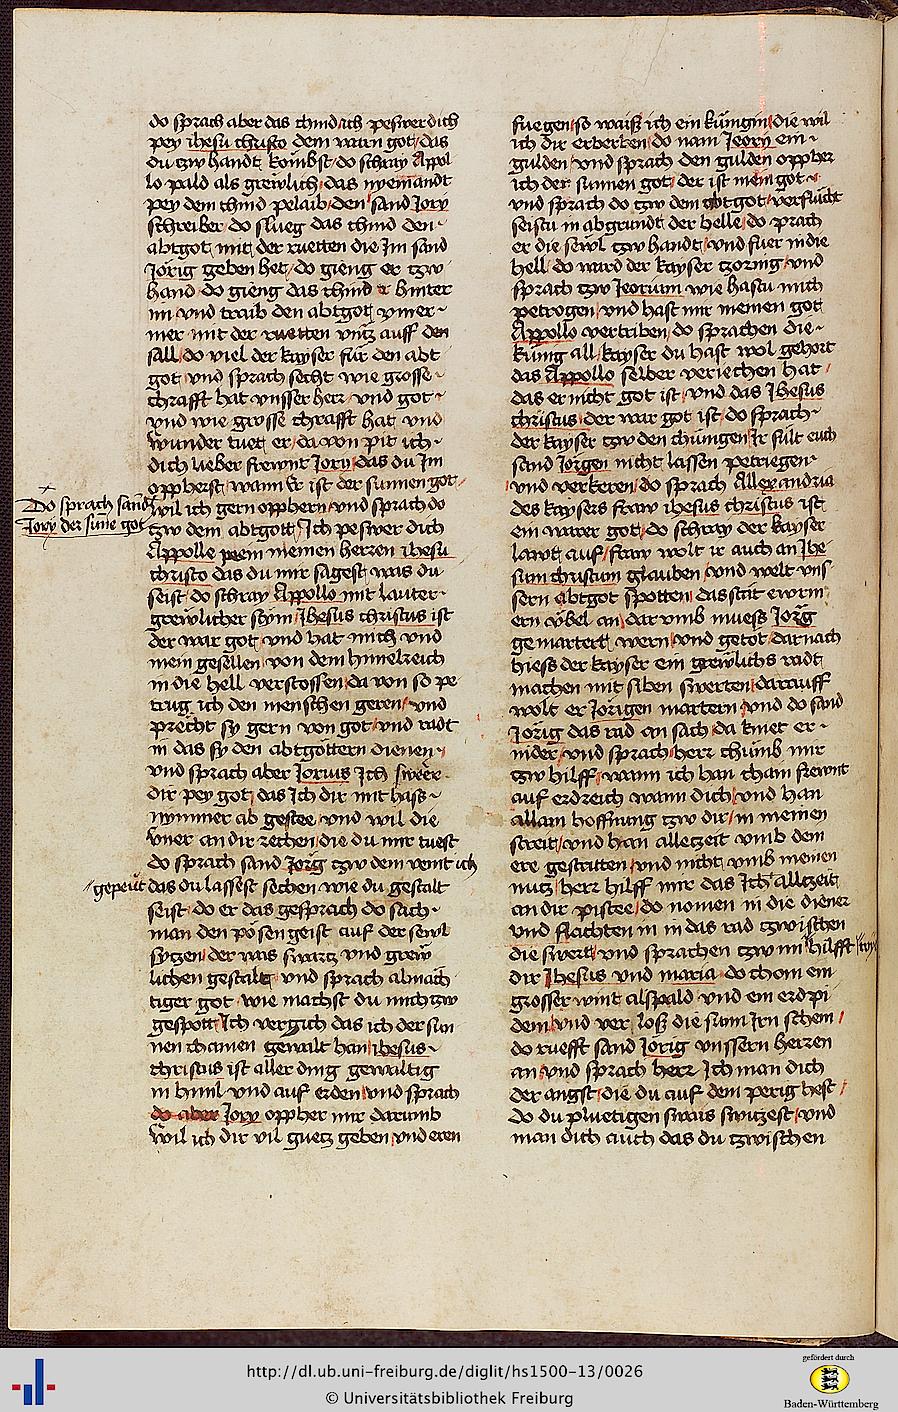 do sprach aber das chind ich peswer dich
pey ihesu christo dem warn got / das
du tzw handt kombst / do schray Appol
lo pald als grewlich / das nyemandt
pey dem chind pelaib / den sand Jory
schreiber / do slueg das chind den
abtgot mit der ruetten die Im sand
Jorig geben het / do gieng er tzw
hand / do gieng das chind er hinter
im vnd traib den abtgot ymer
mer mit der ruetten vntz auff den
sall / do viel der kayser für den abt
got vnd sprach secht wie grosse
chrafft hat vnsser herr vnd got
vnd wie grosse chrafft hat vnd
wunder tuet er / da von pit ich
dich lieber frewnt Jory / das du Im
oppherst / wann Er ist der sunnen got
Do sprach sand
Jory der sune got
wil ich gern opphern / vnd sprach do
tzw dem abtgott / Ich peswer dich
Appolle peem meinen herren ihesu
christo das du mir sagest was du
seist / do schray Appollo mit lauter
grewlicher stym / Ihesus christus ist
der war got / vnd hat mich vnd
mein gesellen von dem himelreich
in die hell verstossen / da von so pe
trug ich den menschen geren / vnd
precht sy gern von got / vnd radt
in das sy den abtgöttern dienen
vnd sprach aber Jorius Ich swer
dir pey got / das Ich dir mit hass
nymmer ab gestee / vnd wil die
vner an dir rechen / die du mir tuest
do sprach sand Jorig tzw dem veint ich
gepeut das du lassest sechen wie du gestalt
seist / do er das gesprach do sach
man den posen geist auf der sewl
sytzen / der was swartz vnd grew
lichen gestalt / vnd sprach almäch
tiger got wie machst du mich zw
gespott / Ich vergich das ich der sun
nen chainen gewalt han / ihesus
christus ist aller ding gewaltig
in himl vnd auf erden / vnd sprach
do aber Jory oppher mir darumb
wil ich dir vil guetz geben / vnd eren
fuegen / so waiß ich ein künigin / die wil
ich dir erberken / do nam Jeory ein
gulden / vnd sprach den gulden oppher
ich der sunnen got / der ist mein got
vnd sprach do tzw dem abtgot / verflucht
seistu in abgrundt der helle / do prach
er die sewl tzw handt / vnd fuer in die
hell / do ward der kayser tzornig / vnd
sprach tzw Jeorium wie hastu mich
petrogen / vnd hast mir meinen got
Appollo vertriben / do sprachen die
künig all / kayser du hast wol gehort
das Appollo selber veriechen hat
das er nicht got ist / vnd das Ihesus
christus / der war got ist / do sprach
der kayser tzw den chünigen / Ir sült euch
sand Jorgen nicht lassen petriegen
vnd verkeren / do sprach Allexandria
des kaysers fraw ihesus christus ist
ein warer got / do schray der kayser
lawt auf / fraw wolt ir auch an Ihe
sum christum glauben / vnd welt vns
sern abtgot spotten / das stat ewrm
ern vbel an / dar vmb muess Jorg
gemartertt wern / vnd getöt / darnach
hiess der kayser ein grewlichs radt
machen mit siben swerten / darauff
wolt er Jorigen martern / vnd do sand
Jorig das rad an sach / da kniet er
nider / vnd sprach / herr chümb mir
tzw hilff / wann ich han chain frewnt
auf erdreich wann dich / vnd han
allain hoffnung tzw dir / in meinen
streit / vnd han alletzeit vmb dein
ere gestritten / vnd nicht vmb meinen
nutz / herr hilff mir das Ich alltzeit
an dir pistee / do nomen in die diener
vnd flachten in in das rad tzwischen
die swert / vnd sprachen tzw im hilfft
dir Ihesus vnd maria do chom ein
grosser wint alspald vnd ein erdpi
dem / vnd verloß die sunn Irn schein
do ruefft sand Jorig vnssern herren
an / vnd sprach herr Ich man dich
der angst / die du auf dem perig hest
do du pluetigen swais switzest / vnd
man dich auch das du tzwischen
http://dl.ub.uni-freiburg.de/diglit/hs1500-13/0026
© Universitätsbibliothek Freiburg
gefördert durch
Baden-Württemberg